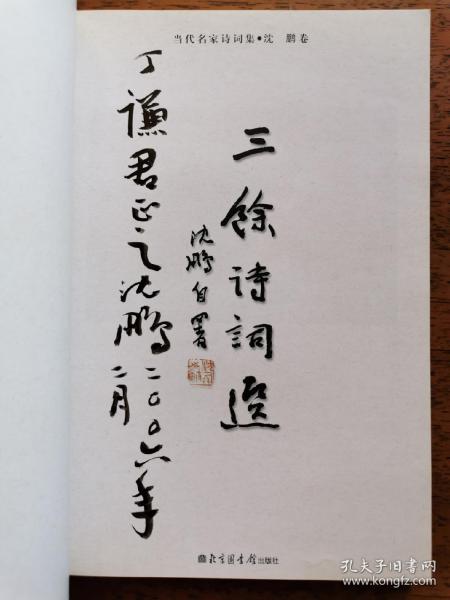 当代名家诗词集●沈 鹏卷
三餘诗詞选
沈鹏自署
丁谦君正之沈鹏二〇〇六年
二月
北京图书馆出版社
孔夫子旧书网
www.kongfz.com